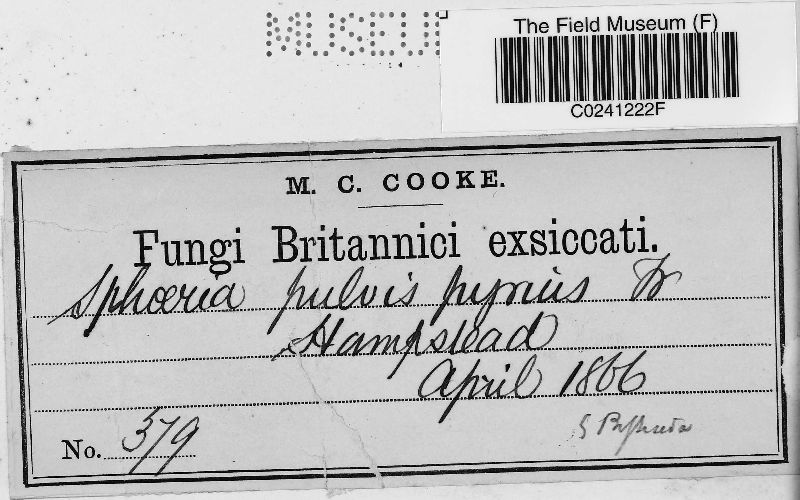 MUSEUM
The Field Museum (F)
C0241222F
M. C. COOKE.
Fungi Britannici exsiccati.
Sphæria pulvis pyrius Fr
Hampstead
April 1866
No. 379